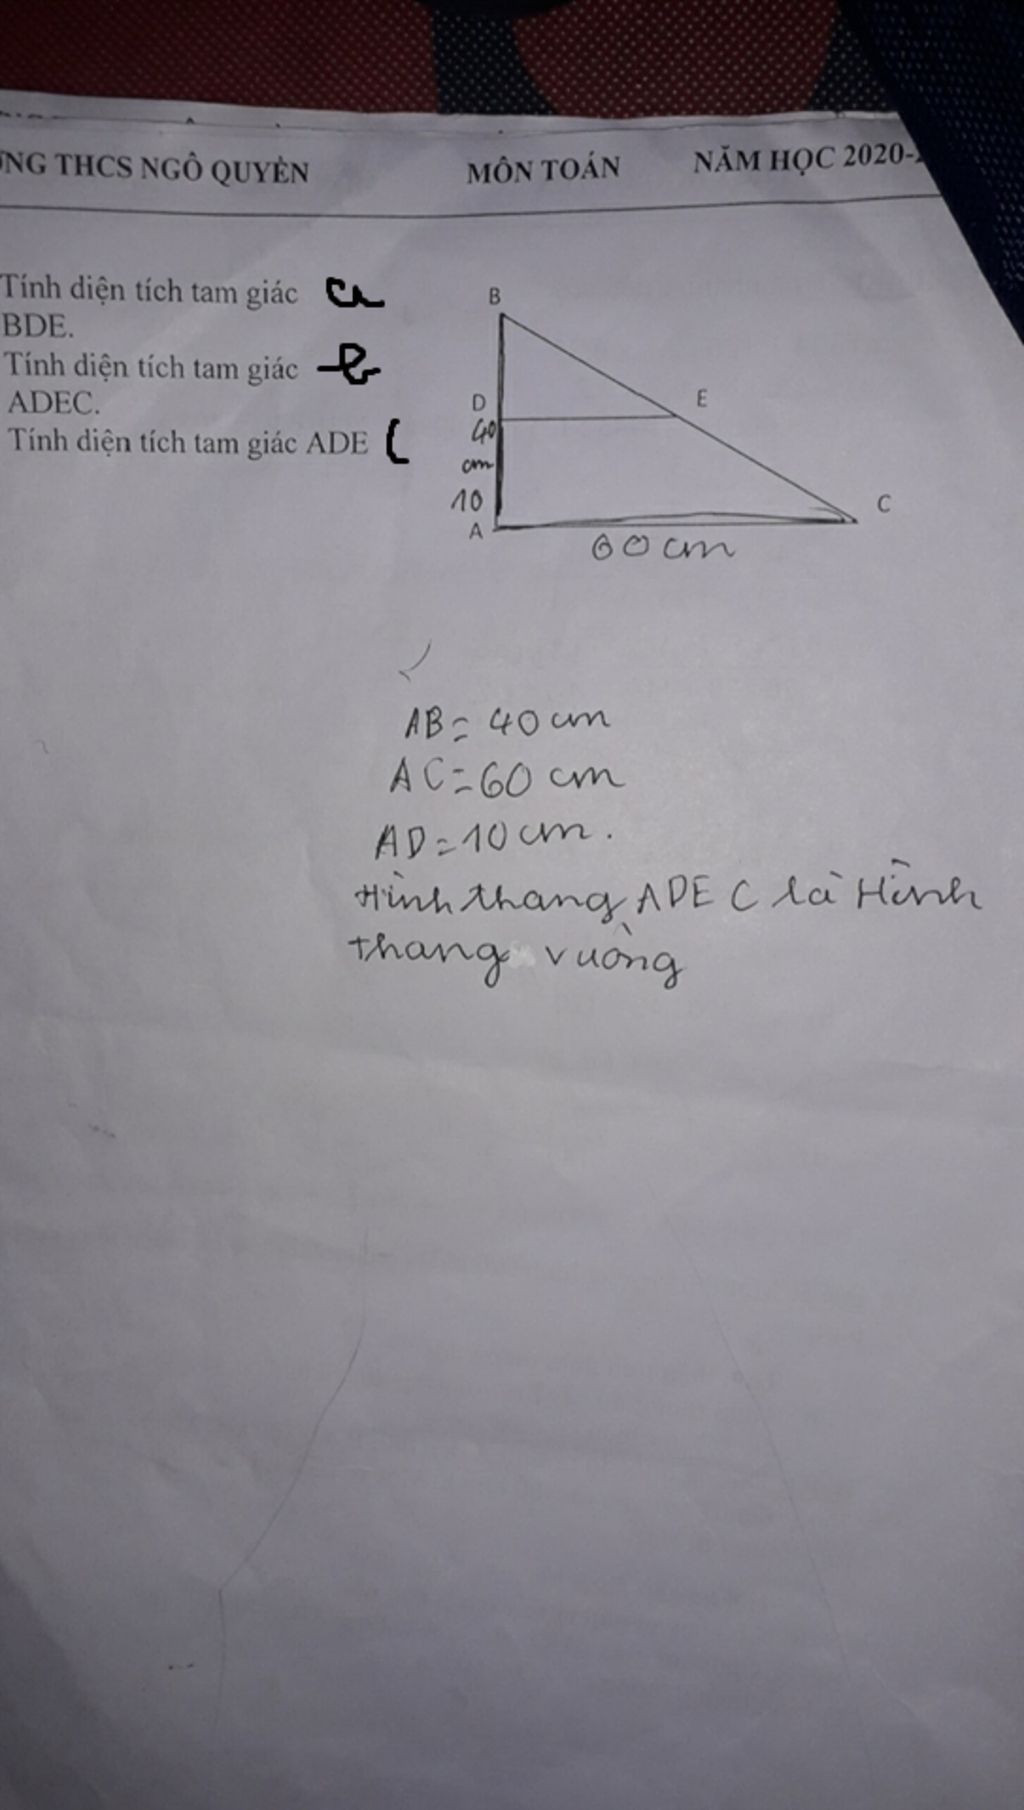 THCS NGÔ QUYỀN MÔN TOÁN NĂM HỌC 2020-
Tính diện tích tam giác a
BDE.
Tính diện tích tam giác b
ADEC.
Tính diện tích tam giác ADE c
B
D
E
40
cm
10
A
C
60 cm
AB = 40 cm
AC = 60 cm
AD = 10 cm.
Hình thang ADEC là Hình
thang vuông